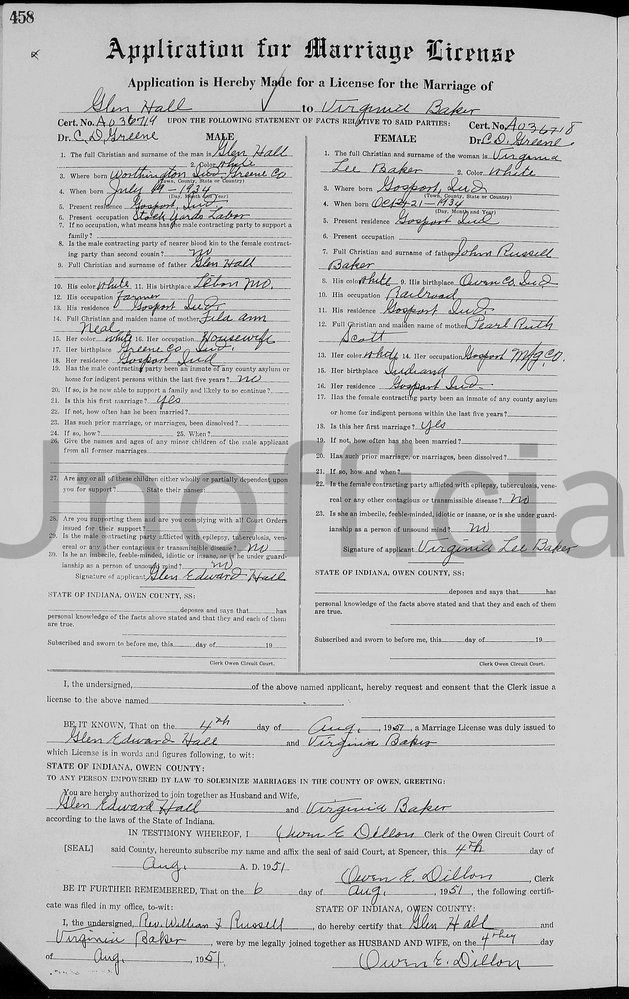 458
Application for Marriage License
Application is Hereby Made for a License for the Marriage of
Glen Hall to Virginia Baker
Cert. No. A036719 UPON THE FOLLOWING STATEMENT OF FACTS RELATIVE TO SAID PARTIES: Cert. No. A036718
Dr. C. D. Greene MALE
1. The full Christian and surname of the man is Glen Hall
2. Color White
3. Where born Worthington Ind Greene Co
(Town, County, State or Country)
4. When born July 19-1934
(Day, Month and Year)
5. Present residence Gosport, Ind
6. Present occupation Stock Yards Labor
7. If no occupation, what means has the male contracting party to support a
family?
8. Is the male contracting party of nearer blood kin to the female contract-
ing party than second cousin? No
9. Full Christian and surname of father Glen Hall
10. His color White 11. His birthplace Mo.
12. His occupation Farmer
13. His residence Gosport Ind.
14. Full Christian and maiden name of mother Ann
Neal
15. Her color White 16. Her occupation Housewife
17. Her birthplace Greene Co Ind.
18. Her residence Gosport Ind
19. Has the male contracting party been an inmate of any county asylum or
home for indigent persons within the last five years? No
20. If so, is he now able to support a family and likely to so continue?
21. Is this his first marriage? Yes
22. If not, how often has he been married?
23. Has such prior marriage, or marriages, been dissolved?
24. If so, how? 25. When?
26. Give the names and ages of any minor children of the male applicant
from all former marriages
27. Are any or all of these children either wholly or partially dependent upon
you for support? State their names:
28. Are you supporting them and are you complying with all Court Orders
issued for their support?
29. Is the male contracting party afflicted with epilepsy, tuberculosis, ven-
ereal or any other contagious or transmissible disease? No
30. Is he an imbecile, feeble-minded, idiotic or insane, or is he under guard-
ianship as a person of unsound mind? No
Signature of applicant Glen Edward Hall
STATE OF INDIANA, OWEN COUNTY, SS:
deposes and says that has
personal knowledge of the facts above stated and that they and each of them
are true.
Subscribed and sworn to before me, this day of 19
Clerk Owen Circuit Court.
FEMALE Dr. C. D. Greene
1. The full Christian and surname of the woman is Virginia
Lee Baker 2. Color White
3. Where born Gosport, Ind
(Town, County, State or Country)
4. When born Oct-21-1934
(Day, Month and Year)
5. Present residence Gosport Ind
6. Present occupation
7. Full Christian and surname of father John Russell
Baker
8. His color White 9. His birthplace Owen Co. Ind
10. His occupation Railroad
11. His residence Gosport Ind
12. Full Christian and maiden name of mother Pearl Ruth
Scott
13. Her color White 14. Her occupation Gosport Mfg. Co.
15. Her birthplace Indiana
16. Her residence Gosport Ind
17. Has the female contracting party been an inmate of any county asylum
or home for indigent persons within the last five years?
18. Is this her first marriage? Yes
19. If not, how often has she been married?
20. Has such prior marriage, or marriages, been dissolved?
21. If so, how and when?
22. Is the female contracting party afflicted with epilepsy, tuberculosis, vene-
real or any other contagious or transmissible disease? No
23. Is she an imbecile, feeble-minded, idiotic or insane, or is she under guard-
ianship as a person of unsound mind? No
Signature of applicant Virginia Lee Baker
STATE OF INDIANA, OWEN COUNTY, SS:
deposes and says that has
personal knowledge of the facts above stated and that they and each of them
are true.
Subscribed and sworn to before me, this day of 19
Clerk Owen Circuit Court.
Unofficial
I, the undersigned, of the above named applicant, hereby request and consent that the Clerk issue a
license to the above named
BE IT KNOWN, That on the 4th day of Aug. , 1951, a Marriage License was duly issued to
Glen Edward Hall and Virginia Baker
which License is in words and figures following, to wit:
STATE OF INDIANA, OWEN COUNTY:
TO ANY PERSON EMPOWERED BY LAW TO SOLEMNIZE MARRIAGES IN THE COUNTY OF OWEN, GREETING:
You are hereby authorized to join together as Husband and Wife,
Glen Edward Hall and Virginia Baker
according to the laws of the State of Indiana.
IN TESTIMONY WHEREOF, I Owen E. Dillon Clerk of the Owen Circuit Court of
[SEAL] said County, hereunto subscribe my name and affix the seal of said Court, at Spencer, this 4th day of
Aug. A. D. 1951
Owen E. Dillon, Clerk
BE IT FURTHER REMEMBERED, That on the 6 day of Aug. , 1951, the following certifi-
cate was filed in my office, to-wit: STATE OF INDIANA, OWEN COUNTY:
I, the undersigned, Rev. William J Russell , do hereby certify that Glen Hall and
Virginia Baker , were by me legally joined together as HUSBAND AND WIFE, on the 4 day
of Aug. , 1951.
Owen E. Dillon